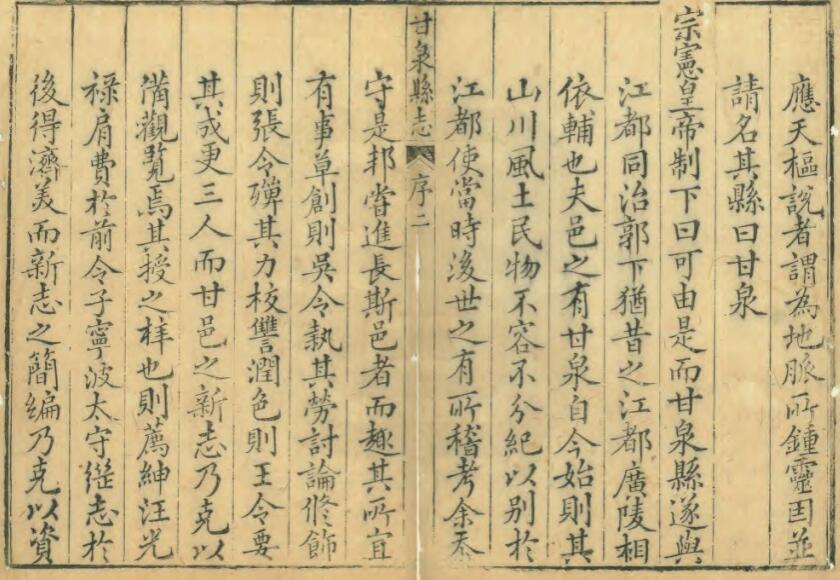 應天樞説者謂為地脈所鍾靈因並
請名其縣曰甘泉
宗憲皇帝制下曰可由是而甘泉縣遂與
江都同治郭下猶昔之江都廣陵相
依輔也夫邑之有甘泉自今始則其
山川風土民物不容不分紀以别於
江都使當時後世之有所稽考余忝
甘泉縣志 序二
守是邦嘗進長斯邑者而趣其所宜
有事草創則吳令執其勞討論修飾
則張令殫其力校讐潤色則王令要
其成更三人而甘邑之新志乃克以
備觀覽焉其授之梓也則薦紳汪光
禄肩費於前令子寧波太守繼志於
後得濟美而新志之簡编乃克以資